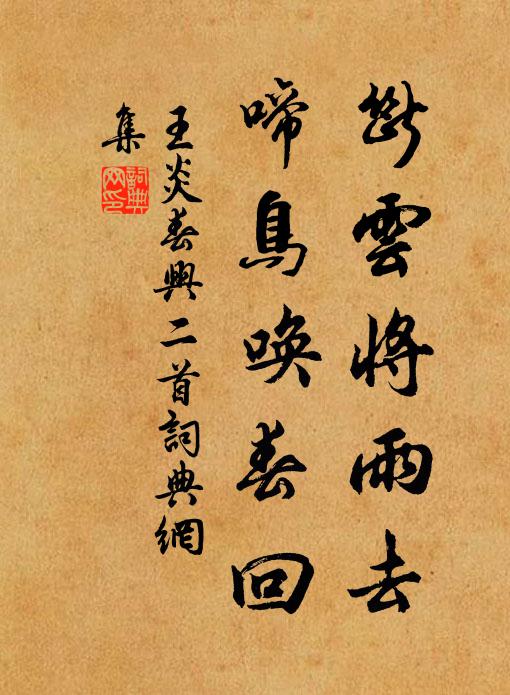 斷雲將雨去
啼鳥喚春回
王炎春興二首詞典網
集
詞典
网印